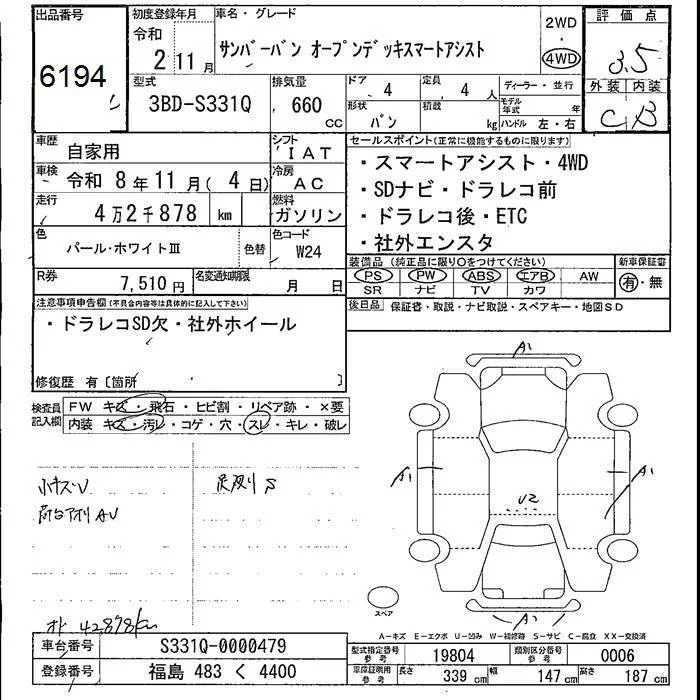 出品番号
6194
初度登録年月
令和
2 11月
車名・グレード
サンバーバン オープンデッキスマートアシスト
2WD
・
4WD
評価点
3.5
外装 内装
C B
型式
3BD-S331Q
排気量
660
CC
ドア
4
定員
4 人
形状
バン
積載
kg
ディーラー・並行
モデル年式
年
ハンドル 左・右
車歴
自家用
シフト
IAT
車検
令和 8年11月(4日)
冷房
AC
走行
4万2千878 km
燃料
ガソリン
色
パール・ホワイトⅢ
色替
色コード
W24
R券
7,510円
名変通知期限
月 日
セールスポイント(正常に機能するものに限ります)
・スマートアシスト・4WD
・SDナビ・ドラレコ前
・ドラレコ後・ETC
・社外エンスタ
装備品(純正品に限り○をつけてください)
PS PW ABS エアB AW
SR ナビ TV カワ
新車保証書
有・無
後日品 保証書・取説・ナビ取説・スペアキー・地図SD
注意事項申告欄(不具合内容等は具体的に記入して下さい)
・ドラレコSD欠・社外ホイール
修復歴 有〔箇所 〕
検査員記入欄
FW キズ・飛石・ヒビ割・リペア跡・×要
内装 キズ・汚レ・コゲ・穴・スレ・キレ・破レ
小キズ・U
足廻り S
オト 42878km
A1
A1
A1
U2
A1
スペア
A-キズ E-エクボ U-凹み W-補修跡 S-サビ C-腐食 XX-交換済
車台番号
S331Q-0000479
登録番号
福島 483 く 4400
型式指定番号
参考
19804
類別区分番号
参考
0006
車庫証明用
参考
長さ
339 cm
幅
147 cm
高さ
187 cm